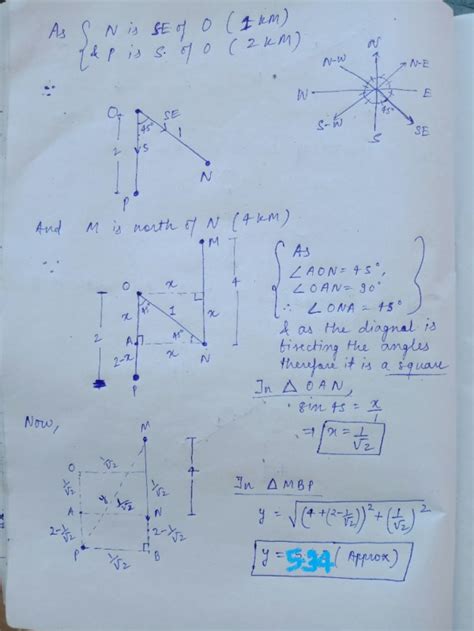 As { N is SE of O (1 KM)
& P is S. of O (2 KM)
N
N-W
N-E
W
E
45°
S-W
S
SE
∴
O
SE
45°
1
S
2
N
P
And M is north of N (4 KM)
M
∴
O
x
4
45°
1
x
x
2
A
45°
x
N
2-x
P
As
∠AON = 45°,
∠OAN = 90°
∴ ∠ONA = 45°
& as the diagnal is
bisecting the angles
therefore it is a square
In △ OAN,
sin 45 = x/1
⇒ x = 1/√2
Now,
M
4
O
1/√2
1/√2
y
1/√2
A
N
2-1/√2
2-1/√2
P
1/√2
B
In △ MBP
y = √((4+(2-1/√2))² + (1/√2)²
y = 5.34 (Approx)